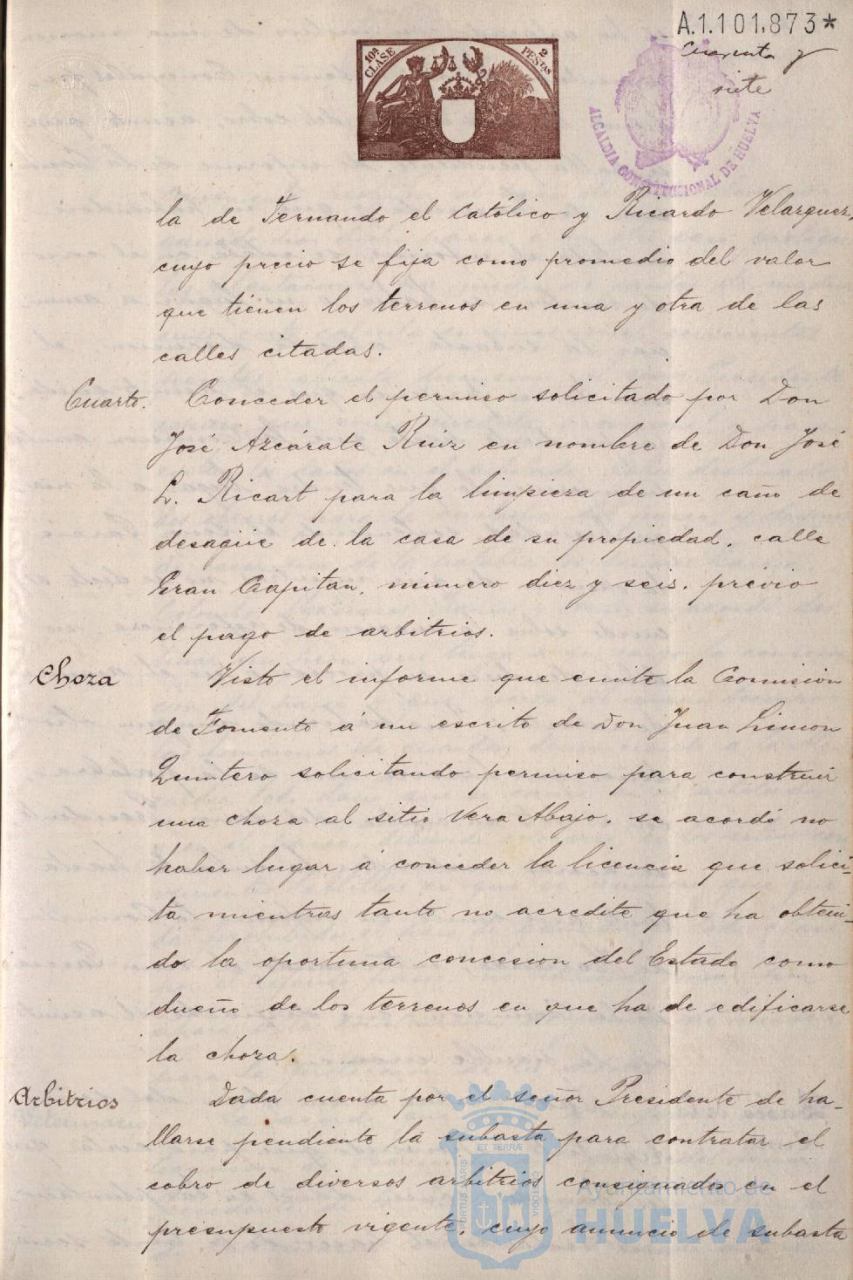 A.1.101.873*
Cuarenta y
siete
10ª CLASE 2 PESETAS
ALCALDIA CONSTITUCIONAL DE HUELVA
la de Fernando el Católico y Ricardo Velazquez,
cuyo precio se fija como promedio del valor
que tienen los terrenos en una y otra de las
calles citadas.
Cuarto. Conceder el permiso solicitado por Don
José Azcárate Ruiz en nombre de Don José
L. Ricart para la limpieza de un caño de
desagüe de la casa de su propiedad, calle
Gran Capitan, número diez y seis, prévio
el pago de arbitrios.
Choza Visto el informe que emite la Comisión
de Fomento á un escrito de Don Juan Limon
Quintero solicitando permiso para construir
una choza al sitio Vera Abajo, se acordó no
haber lugar á conceder la licencia que solici-
ta mientras tanto no acredite que ha obteni-
do la oportuna concesion del Estado como
dueño de los terrenos en que ha de edificarse
la choza.
Arbitrios Dada cuenta por el señor Presidente de ha-
llarse pendiente la subasta para contratar el
cobro de diversos arbitrios consignados en el
presupuesto vigente, cuyo anuncio de subasta
Ayuntamiento de
HUELVA